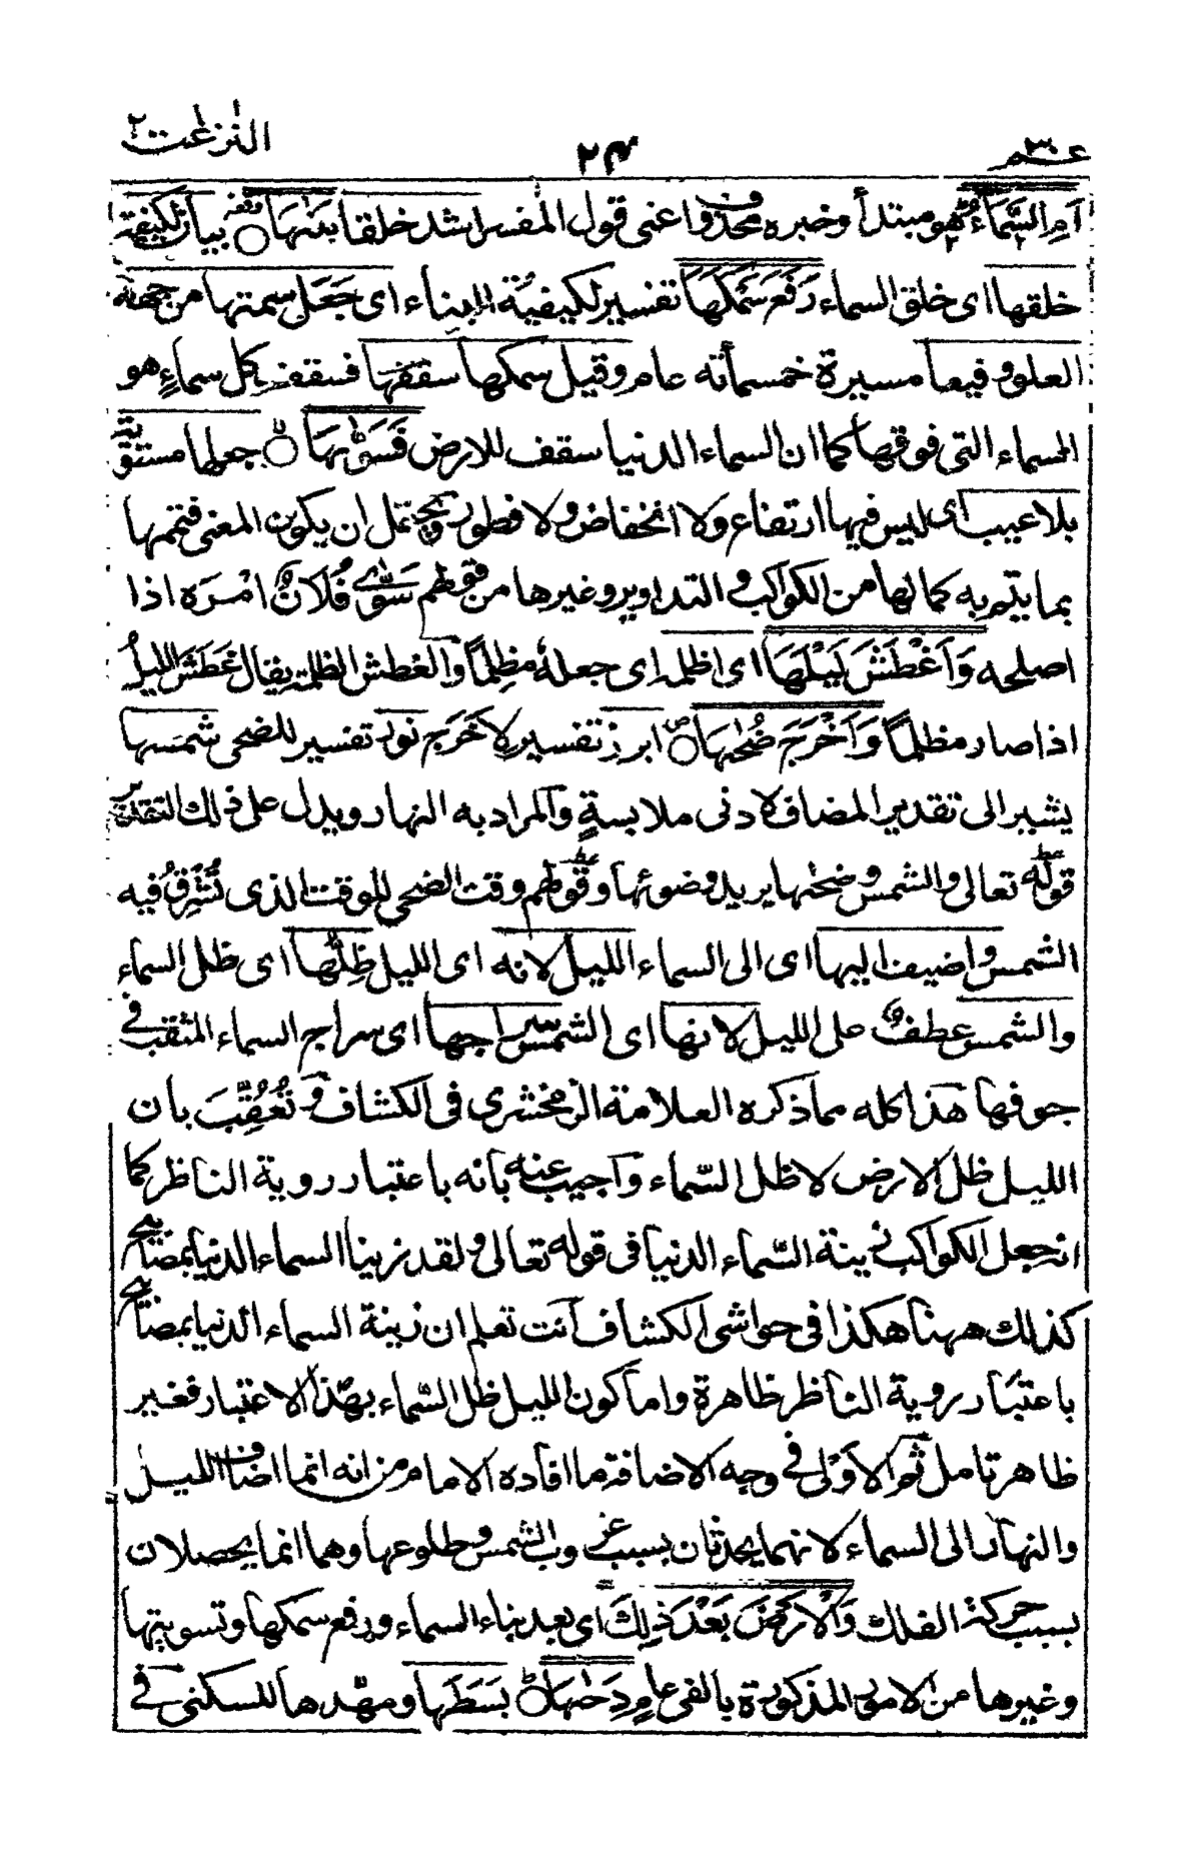 عـم ٣٠
٢٤
النزعت ٢
اَمِ السَّمَآءُ هو مبتدأ وخبره محذوف واعنى قول المفسر اشد خلقا بَنٰىهَا بيان لكيفية
خلقها اى خلق السماء رَفَعَ سَمْكَهَا تفسير لكيفية البناء اى جَعَلَ سمتها من جهة
العلو رفيعا مسيرة خمسمأته عام وقيل سمكها سقفها فسقف كل سماءٍ هو
السماء التى فوقها كما ان السماء الدنيا سقف للارض فَسَوّٰىهَا جعلها مستوية
بلا عيب اى ليس فيها ارتفاع ولا انخفاض ولا فطور ويحتمل ان يكون المعنى فتممها
بما يتم به كمالها من الكواكب والتداوير وغيرها من قولهم سَوّٰى فُلَانٌ امْرَه اذا
اصلحه وَاَغْطَشَ لَيْلَهَا اى اظلمه اى جعله مظلمًا والغطش الظلمة يقال غَطَشَ الليلُ
اذا صار مظلمًا وَاَخْرَجَ ضُحٰىهَا ابرز تفسير لاَخْرَجَ نور تفسير للضحى شمسها
يشير الى تقدير المضاف لادنى ملابسةٍ والمراد به النهار ويدل على ذلك التقدير
قوله تعالى والشمس وضحٰها يريد وضوئها وقولهم وقت الضحى للوقت الذى تُشْرِقُ فيه
الشمس واضيف اليها اى الى السماء الليل لانه اى الليل ظِلُّها اى ظل السماء
والشمس عطفٌ على الليل لانها اى الشمس سراجها اى سراج السماء المثقب فى
جوفها هذا كله مما ذكره العلامة الزمخشرى فى الكشاف وتُعُقِّبَ بان
الليل ظل الارض لا ظل السّماء وآجيب عنه بأنه باعتبار روية الناظر كما
انه جعل الكواكب زينة السّماء الدنيا فى قوله تعالى ولقد زينا السماء الدنيا بمصابيح
كذلك ههنا هكذا فى حواشى الكشاف آنت تعلم ان زينة السماء الدنيا بمصابيح
باعتبار روية الناظر ظاهرة واما كون الليل ظل السّماء بهذا الاعتبار فغير
ظاهر تامل ثم الاَوْلى فى وجه الاضافة ما افاده الامام من انه انما اضاف الليل
والنهار الى السماء لانهما يحدثان بسبب غروب الشمس وطلوعها وهما انما يحصلان
بسبب حركة الفلك وَالْاَرْضَ بَعْدَ ذٰلِكَ اى بعد بناء السماء ورفع سمكها وتسويتها
وغيرها من الامور المذكورة بالفى عامٍ دَحٰىهَا بَسَطَها ومهّدها للسكنى فى